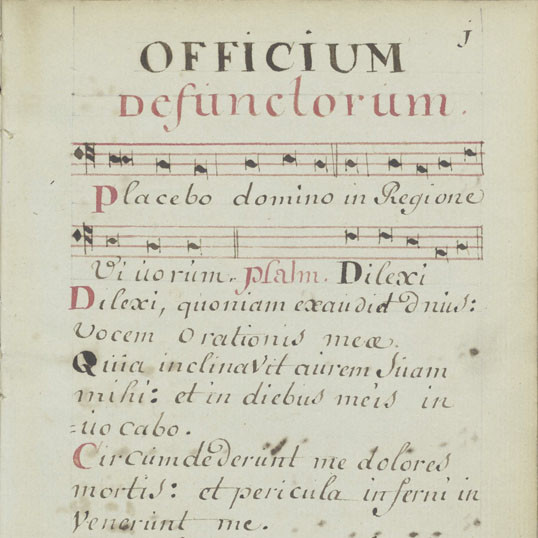 j
OFFICIUM
Defunctorum.
Placebo domino in Regione
Vi uorum. psalm. Dilexi
Dilexi, quoniam exaudit dnus:
vocem orationis meæ.
Quia inclinavit aurem suam
mihi: et in diebus meis in
=uocabo.
Circumdederunt me dolores
mortis: et pericula inferni in
venerunt me.